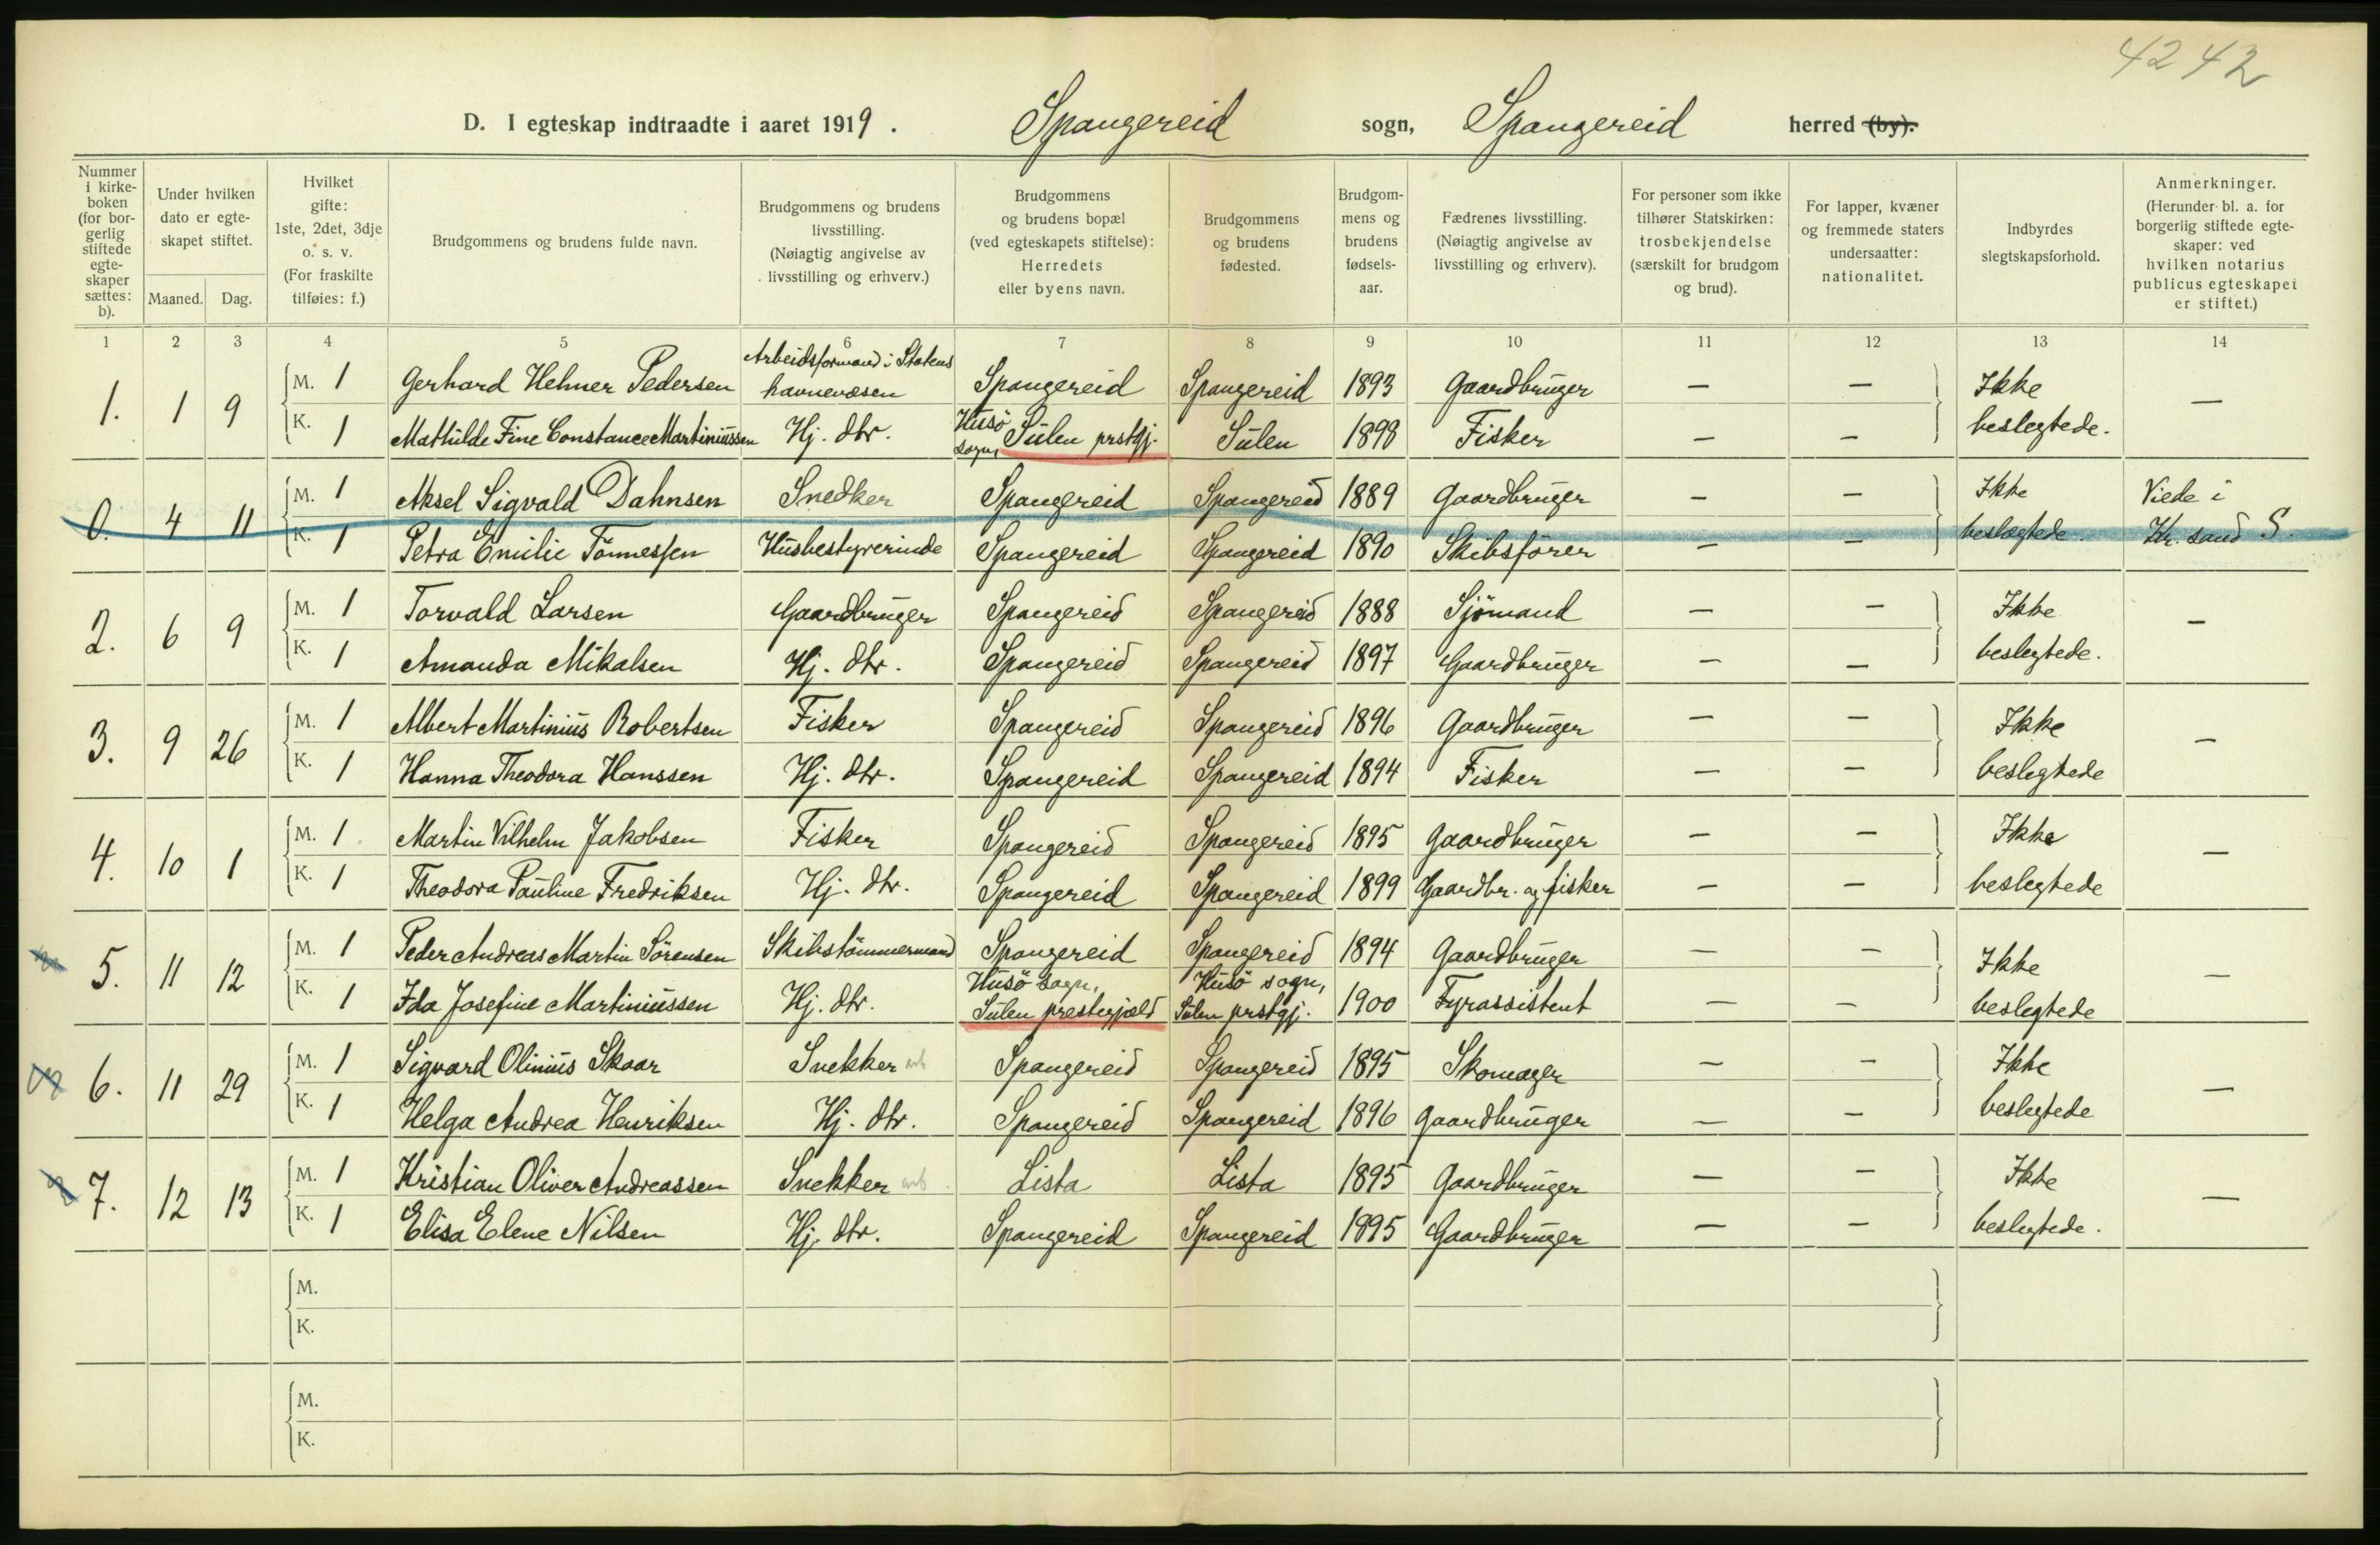 42 42
D. I egteskap indtraadte i aaret 1919. Spangereid sogn, Spangereid herred (by).
Nummer i kirkeboken (for borgerlig stiftede egteskaper sættes: b).
Under hvilken dato er egteskapet stiftet.
Maaned. Dag.
Hvilket gifte: 1ste, 2det, 3dje o. s. v. (For fraskilte tilføies: f.)
Brudgommens og brudens fulde navn.
Brudgommens og brudens livsstilling. (Nøiagtig angivelse av livsstilling og erhverv.)
Brudgommens og brudens bopæl (ved egteskapets stiftelse): Herredets eller byens navn.
Brudgommens og brudens fødested.
Brudgommens og brudens fødselsaar.
Fædrenes livsstilling. (Nøiagtig angivelse av livsstilling og erhverv).
For personer som ikke tilhører Statskirken: trosbekjendelse (særskilt for brudgom og brud).
For lapper, kvæner og fremmede staters undersaatter: nationalitet.
Indbyrdes slegtskapsforhold.
Anmerkninger. (Herunder bl. a. for borgerlig stiftede egteskaper: ved hvilken notarius publicus egteskapet er stiftet.)
1 2 3 4 5 6 7 8 9 10 11 12 13 14
1. 1 9 M. 1 Gerhard Helmer Pedersen Arbeidsformand i Statens havnevæsen Spangereid Spangereid 1893 Gaardbruger — — Ikke —
K. 1 Mathilde Fine Constance Martiniussen Hj. dtr. Husö sogn, Sulen prstgj. Sulen 1898 Fisker — — beslegtede.
0. 4 11 M. 1 Aksel Sigvald Dahnsen Snedker Spangereid Spangereid 1889 Gaardbruger — — Ikke Viede i
K. 1 Petra Emilie Tönnessen Husbestyrerinde Spangereid Spangereid 1890 Skibsförer — — beslægtede. Kr. sand S.
2. 6 9 M. 1 Torvald Larsen Gaardbruger Spangereid Spangereid 1888 Sjömand — — Ikke —
K. 1 Amanda Mikalsen Hj. dtr. Spangereid Spangereid 1897 Gaardbruger — — beslegtede.
3. 9 26 M. 1 Albert Martinius Robertsen Fisker Spangereid Spangereid 1896 Gaardbruger — — Ikke —
K. 1 Hanna Theodora Hanssen Hj. dtr. Spangereid Spangereid 1894 Fisker — — beslegtede
4. 10 1 M. 1 Martin Vilhelm Jakobsen Fisker Spangereid Spangereid 1895 Gaardbruger — — Ikke —
K. 1 Theodora Pauline Fredriksen Hj. dtr. Spangereid Spangereid 1899 Gaardbr. og fisker — — beslegtede
5. 11 12 M. 1 Peder Andreas Martin Sörensen Skibstömmermand Spangereid Spangereid 1894 Gaardbruger — — Ikke —
K. 1 Ida Josefine Martiniussen Hj. dtr. Husö sogn, Sulen prestegjæld Husö sogn, Sulen prstgj. 1900 Fyrassistent — — beslegtede
6. 11 29 M. 1 Sigvard Olinius Skaar Snekker arb Spangereid Spangereid 1895 Skomager — — Ikke —
K. 1 Helga Andrea Henriksen Hj. dtr. Spangereid Spangereid 1896 Gaardbruger — — beslegtede
7. 12 13 M. 1 Kristian Oliver Andreassen Snekker arb Lista Lista 1895 Gaardbruger — — Ikke —
K. 1 Elisa Elene Nilsen Hj. dtr. Spangereid Spangereid 1895 Gaardbruger — — beslegtede.
M.
K.
M.
K.